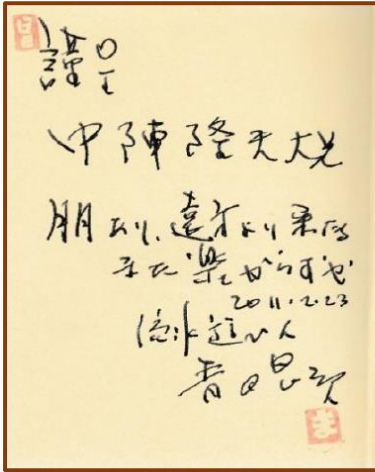 謹呈
中陣隆夫大兄
朋あり、遠方より来る
また楽しからずや
2011.2.23